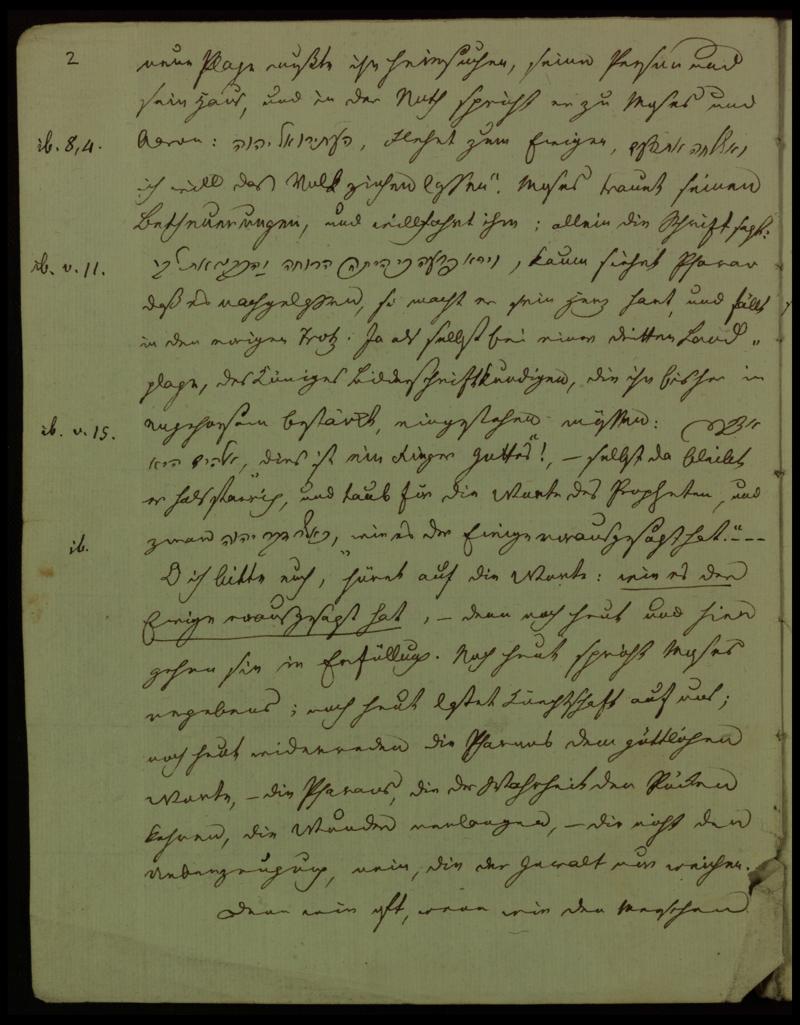 2
neue Plage mußte ihn heimsuchen, seine Person und
sein Haus, und in der Noth spricht er zu Moses und
ib. 8,4. Aaron: העתירו אל יהוה, flehet zum Ewigen, ואשלחה את העם
ich will das Volk ziehen lassen". Moses traut seinen
Betheuerungen, und willfahrt ihm; allein die Schrift sagt:
ib. v. 11. וירא פרעה כי היתה הרוחה והכבד את לבו, kaum siehet Pharao
daß es nachgelassen, so macht er sein Herz hart, und fällt
in den vorigen Trotz. Ja als selbst bei einer dritten Land„
plage, des Königes Bilderschriftkundigen, die ihn bisher im
ib. v. 15. Ungehorsam bestärkt, eingestehen müssen: אצבע
אלהים היא, dies ist ein Finger Gottes"!, — selbst da bleibt
er halsstarrig, und taub für die Worte des Propheten, und
ib. zwar כאשר דבר יהוה, wie es der Ewige vorausgesagt hat." --
O ich bitte euch, höret auf die Worte: wie es der
Ewige vorausgesagt hat, — denn noch heut und hier
gehen sie in Erfüllung. Noch heut spricht Moses
vergebens; noch heut lastet Knechtschaft auf uns;
noch heut widerreden die Pharaos dem göttlichen
Worte, — die Pharaos, die der Wahrheit den Rücken
kehren, die Wunder verlangen, — die nicht der
Ueberzeugung, nein, die der Gewalt nur weichen.
Denn wie oft, wenn wir den Menschen